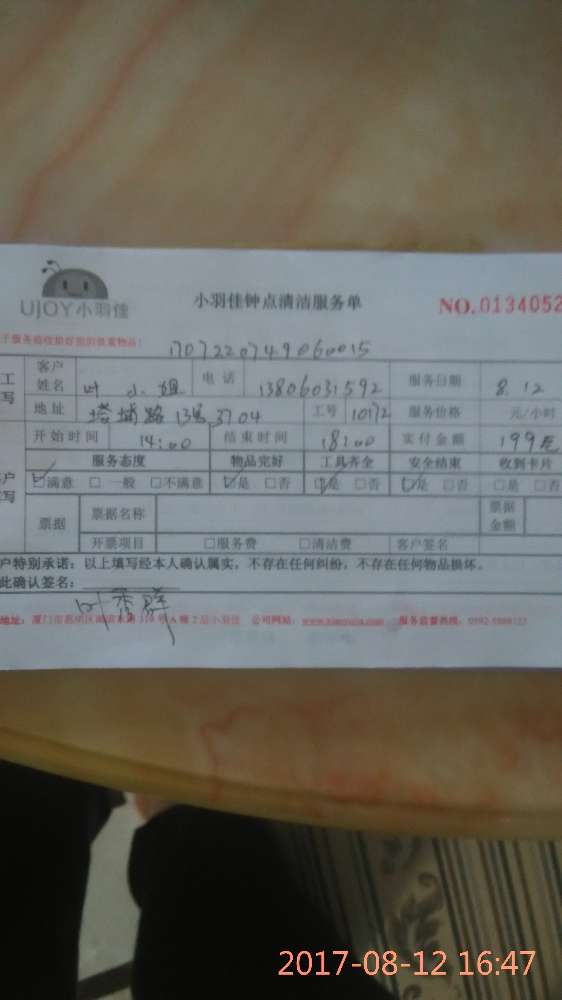 UJOY小羽佳 小羽佳钟点清洁服务单 NO.0134052
1707220749060015
客户姓名 叶小姐 电话 13806031592 服务日期 8.12
地址 塔埔路13号3704 工号 10172 服务价格 元/小时
开始时间 14:00 结束时间 18:00 实付金额 199元
服务态度 物品完好 工具齐全 安全结束 收到卡片
☑满意 □一般 □不满意 ☑是 □否 ☑是 □否 ☑是 □否 □是 □否
票据 票据名称 票据金额
开票项目 □服务费 □清洁费 客户签名
户特别承诺：以上填写经本人确认属实，不存在任何纠纷，不存在任何物品损坏。
此确认签名：
叶
地址：厦门市 2层小羽佳 公司网站： 服务监督热线：0592-
2017-08-12 16:47